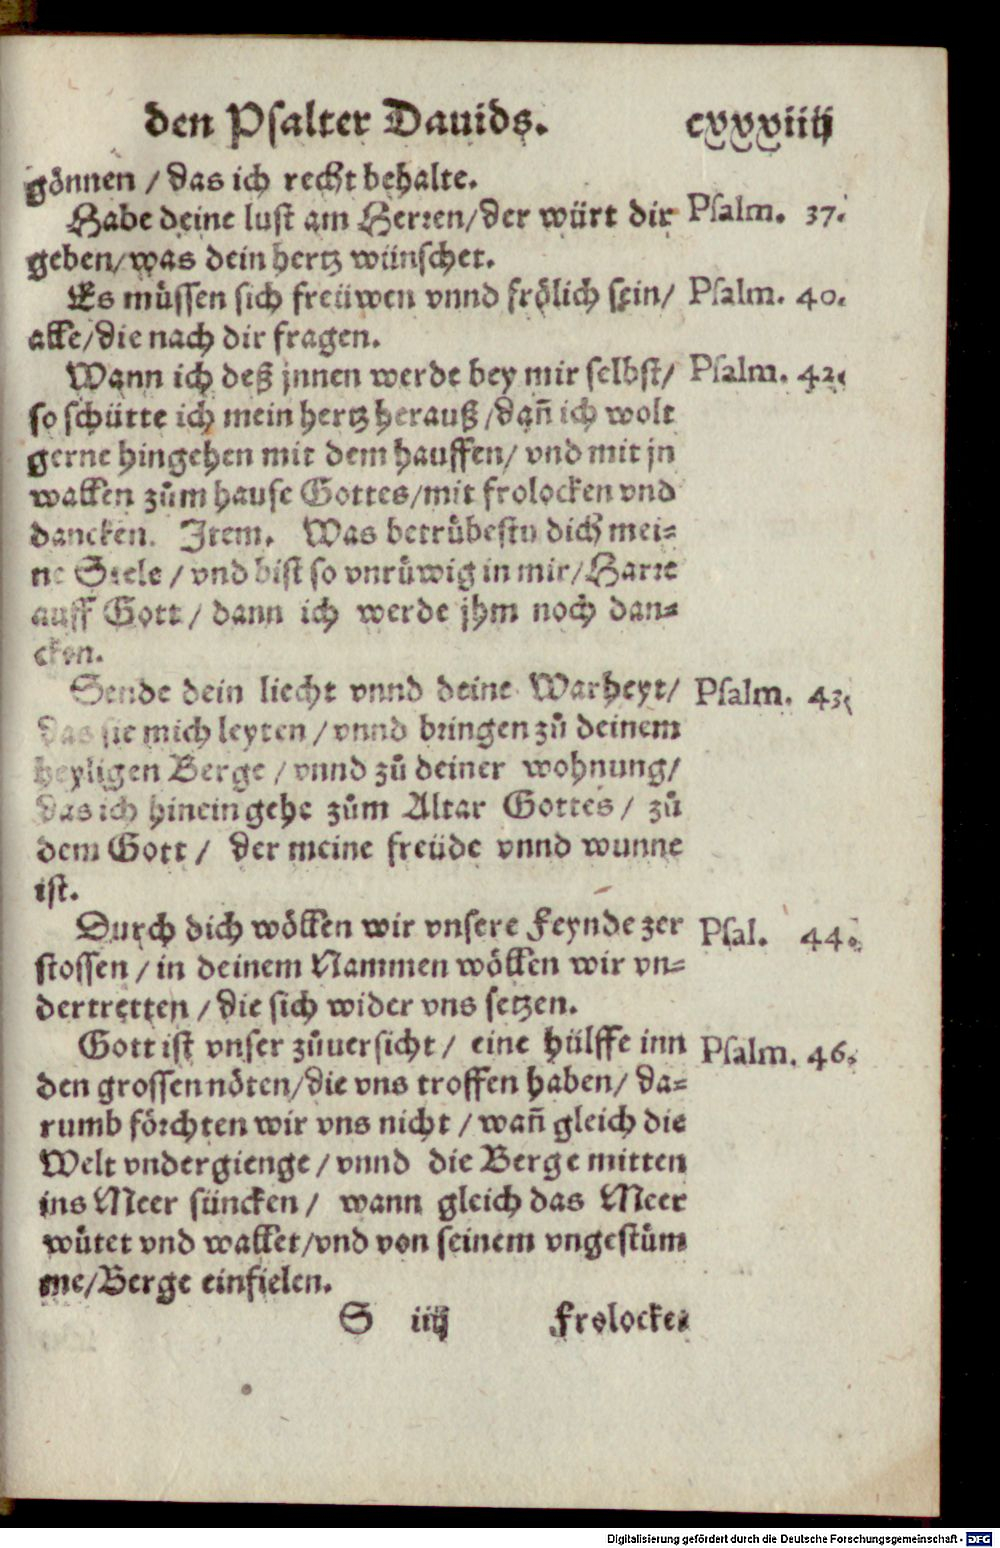 den Psalter Dauids. cxxxiiij
gönnen / das ich recht behalte.
Habe deine lust am Herren/der würt dir Psalm. 37.
geben/was dein hertz wünschet.
Es müssen sich freüwen vnnd frölich sein/ Psalm. 40.
alle/die nach dir fragen.
Wann ich deß jnnen werde bey mir selbst/ Psalm. 42.
so schütte ich mein hertz herauß /dañ ich wolt
gerne hingehen mit dem hauffen/ vnd mit jn
wallen zům hause Gottes/mit frolocken vnd
dancken. Item. Was betrübestu dich mei=
ne Seele / vnd bist so vnrůwig in mir/Harre
auff Gott / dann ich werde jhm noch dan=
cken.
Sende dein liecht vnnd deine Warheyt/ Psalm. 43.
das sie mich leyten / vnnd bringen zů deinem
heyligen Berge / vnnd zů deiner wohnung/
das ich hinein gehe zům Altar Gottes / zů
dem Gott / der meine freüde vnnd wunne
ist.
Durch dich wöllen wir vnsere Feynde zer Psal. 44.
stossen / in deinem Nammen wöllen wir vn=
dertretten / die sich wider vns setzen.
Gott ist vnser zůuersicht / eine hülffe inn Psalm. 46.
den grossen nöten/die vns troffen haben/ da=
rumb förchten wir vns nicht / wañ gleich die
Welt vndergienge / vnnd die Berge mitten
ins Meer süncken / wann gleich das Meer
wütet vnd wallet/vnd von seinem vngestüm
me/Berge einfielen.
S iiij Frolocke=
Digitalisierung gefördert durch die Deutsche Forschungsgemeinschaft - DFG